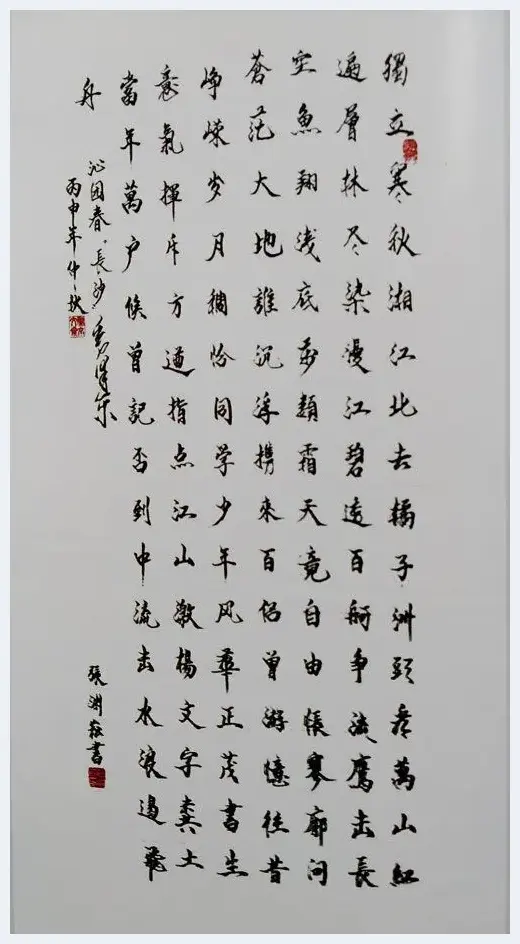 獨立寒秋湘江北去橘子洲頭看萬山紅
遍層林尽染漫江碧透百舸争流鷹击長
空魚翔浅底萬類霜天竟自由悵寥廓问
蒼茫大地誰沉浮携來百侣曾游憶往昔
峥嵘岁月稠恰同学少年风華正茂書生
意氣揮斥方遒指点江山激楊文字粪土
當年萬户侯曾記否到中流击水浪遏飛
舟
沁园春·長沙 毛澤东
丙申年仲秋
張渊書